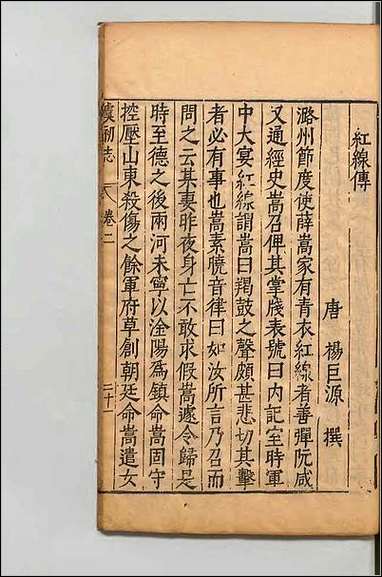 紅線傳
唐 楊巨源 撰
潞州節度使薛嵩家有青衣紅線者善彈阮咸
又通經史嵩召俾其掌牋表號曰內記室時軍
中大宴紅線謂嵩曰羯鼓之聲頗甚悲切其擊
者必有事也嵩素曉音律曰如汝所言乃召而
問之云某妻昨夜身亡不敢求假嵩遽令歸是
時至德之後兩河未寧以淦陽爲鎮命嵩固守
控壓山東殺傷之餘軍府草創朝廷命嵩遣女
虞初志 卷二 二十一